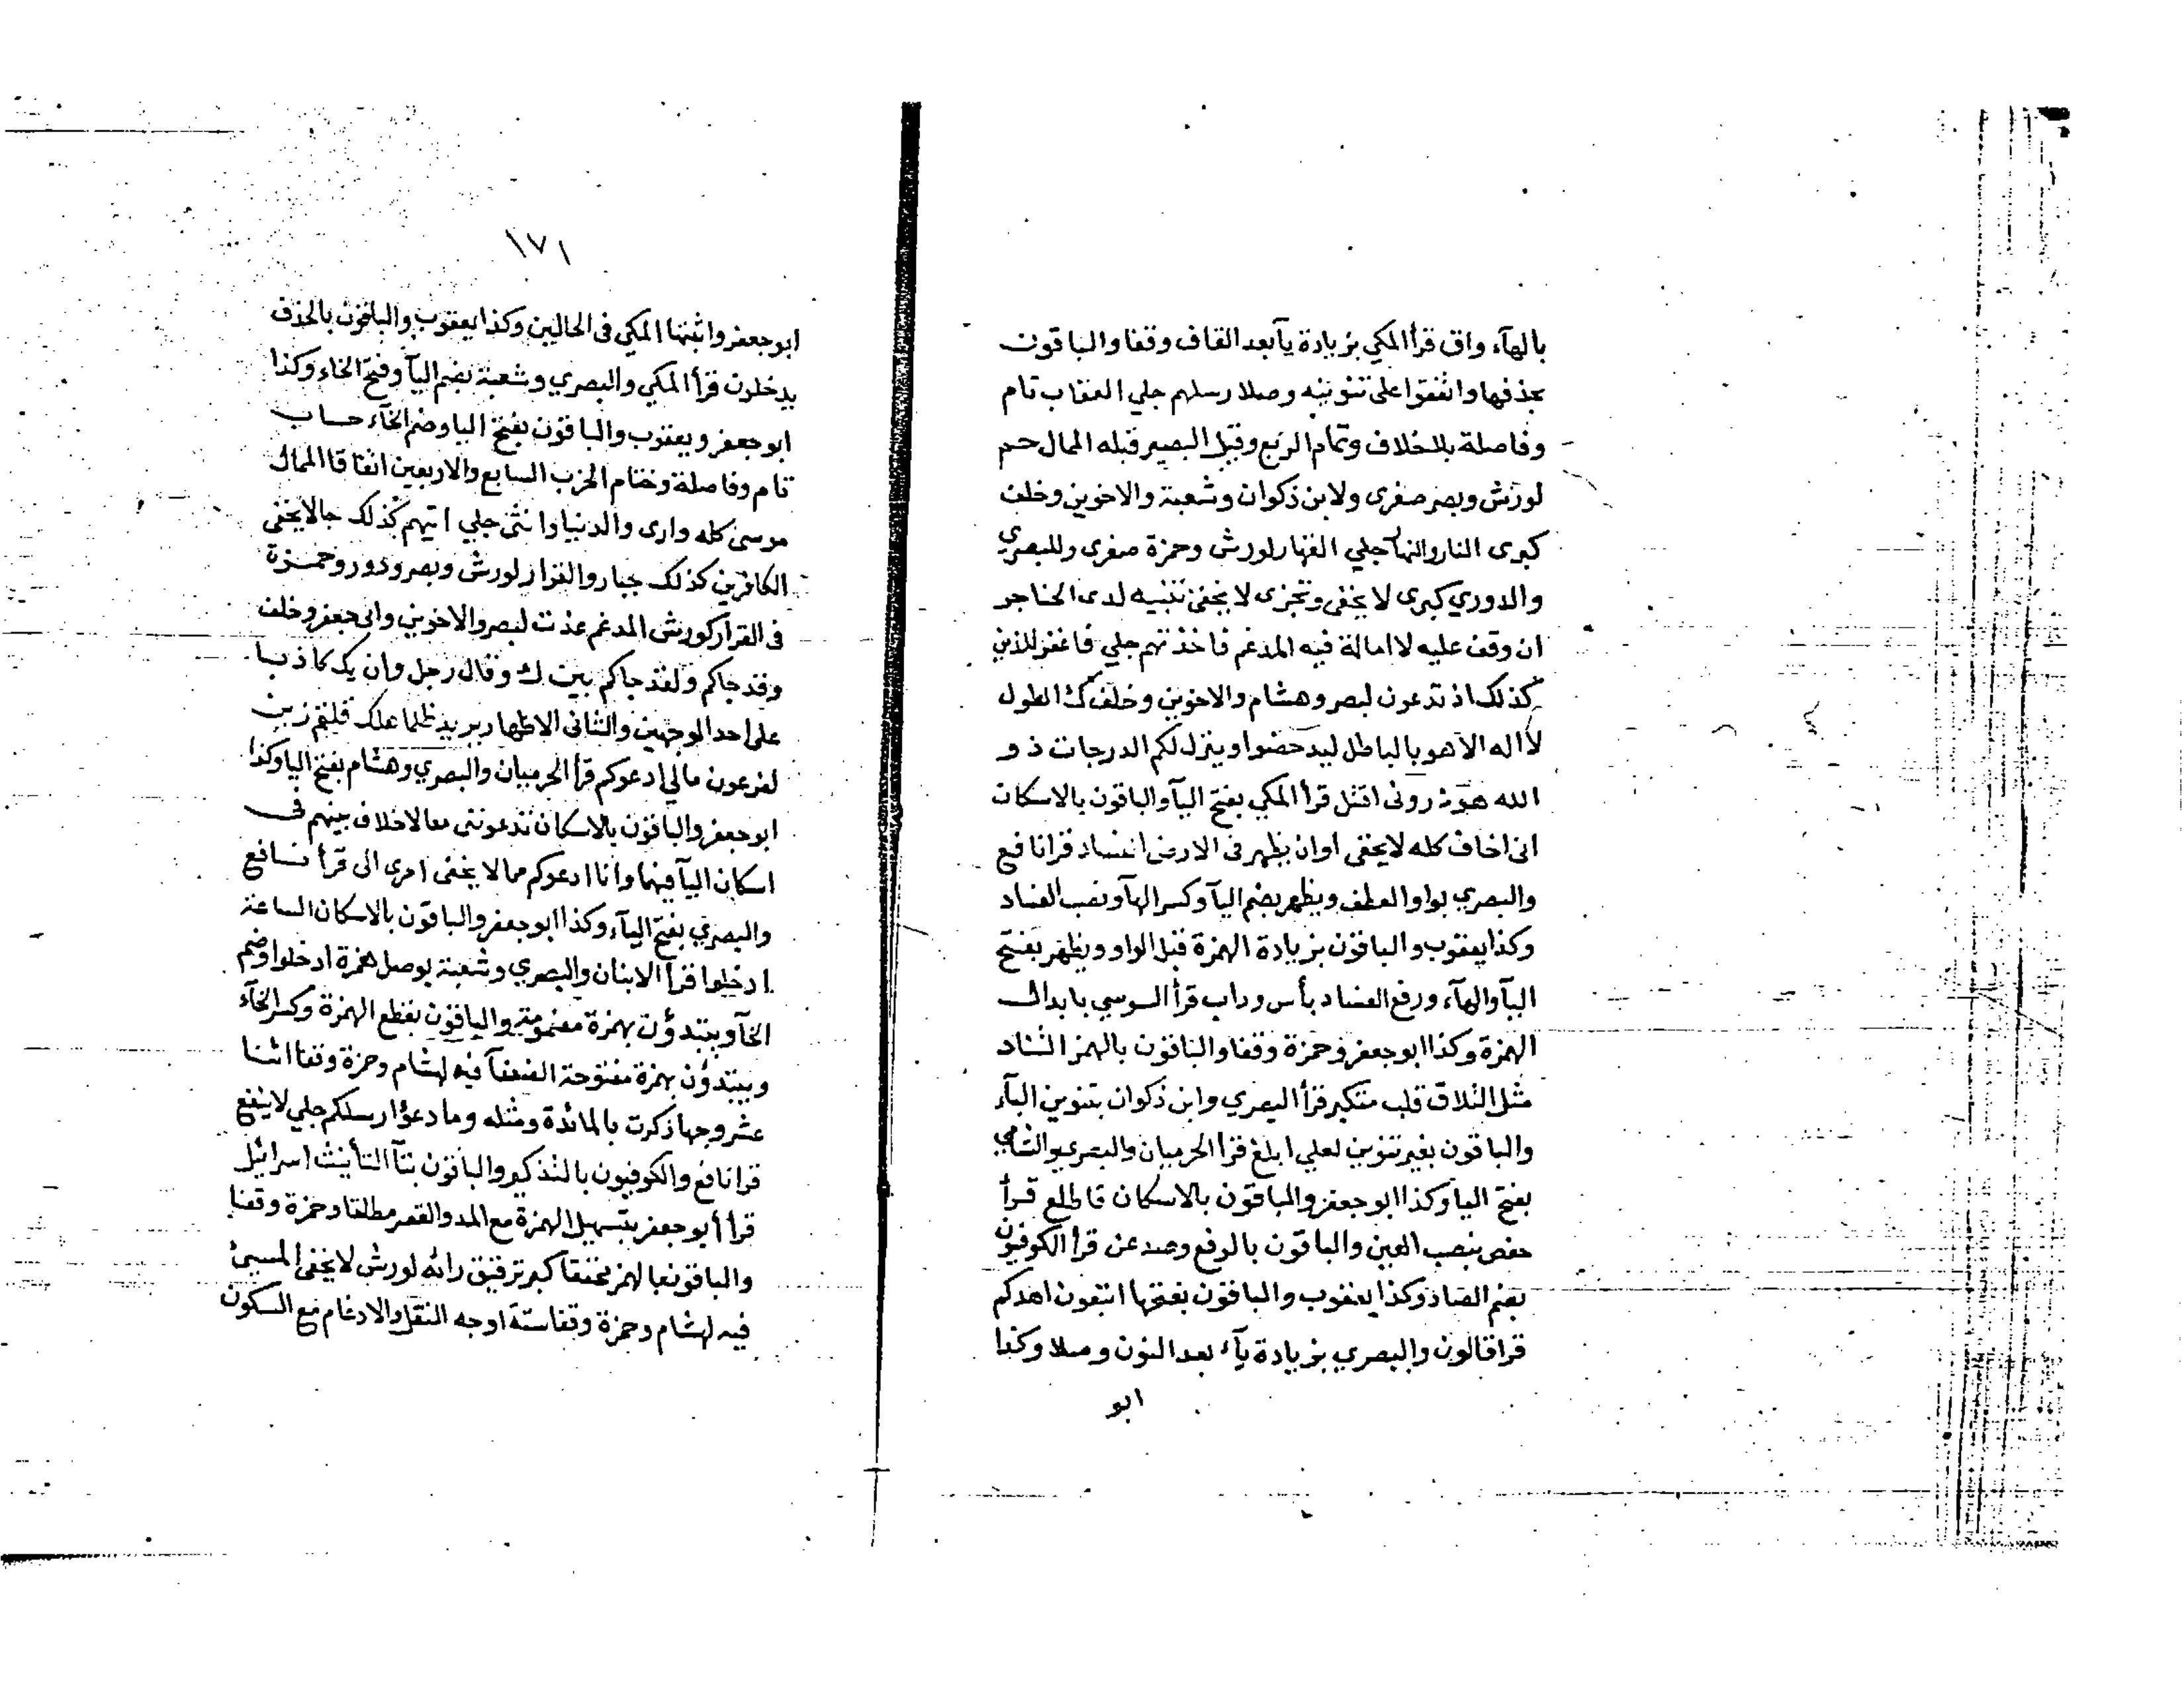 بالهآء واق قرأ المكي بزيادة يآ بعد القاف وقفا والباقون
بحذفها واتفقوا على تنوينه وصلا رسلهم جلي العقاب تام
وفاصلة بلا خلاف وتمام الربع وقيل البصير قبله الممال حم
لورش وبصر صغرى ولابن ذكوان وشعبة والاخوين وخلف
كبرى النار والنهار جلي القهار لورش وحمزة صغرى وللبصري
والدوري كبرى لا يخفى وتجزى لا يخفى تنبيه لدى الحناجر
ان وقف عليه لا امالة فيه المدغم فاخذتهم جلي فاغفر للذين
كذلك اذ تدعون لبصر وهشام والاخوين وخلف ك الطول
لا اله الا هو بالباطل ليدحضوا وينزل لكم الدرجات ذو
الله هو ذروني اقتل قرأ المكي بفتح اليآ والباقون بالاسكان
اني اخاف كله لا يخفى او ان يظهر في الارض الفساد قرا نافع
والبصري بواو العطف ويظهر بضم اليآ وكسر الهآ ونصب الفساد
وكذا يعقوب والباقون بزيادة الهمزة قبل الواو ويظهر بفتح
اليآ والهآء ورفع الفساد بأس وداب قرأ السوسي بابدال
الهمزة وكذا ابو جعفر وحمزة وقفا والباقون بالهمز التناد
مثل التلاق قلب متكبر قرأ البصري وابن ذكوان بتنوين البآء
والباقون بغير تنوين لعلي ابلغ قرا الحرميان والبصري والشامي
بفتح اليا وكذا ابو جعفر والباقون بالاسكان فاطلع قرأ
حفص بنصب العين والباقون بالرفع وصد عن قرأ الكوفيون
بضم الصاد وكذا يعقوب والباقون بفتحها اتبعون اهدكم
قرا قالون والبصري بزيادة يآء بعد النون وصلا وكذا
ابو
١٧١
ابو جعفر واثبتها المكي في الحالين وكذا يعقوب والباقون بالحذف
يدخلون قرأ المكي والبصري وشعبة بضم اليآ وفتح الخاء وكذا
ابو جعفر ويعقوب والباقون بفتح اليا وضم الخآء حساب
تام وفاصلة وختام الحزب السابع والاربعين اتفاقا الممال
موسى كله وارى والدنيا وانثى جلي اتيهم كذلك جا لا يخفى
الكافرين كذلك جبار والقرار لورش وبصر ودور وحمزة
في القرار كورش المدغم عذت لبصر والاخوين وابي جعفر وخلف
وقد جاكم ولقد جاكم بين ك وقال رجل وان يك كاذبا
على احد الوجهين والثاني الاظهار يريد ظلما هلك قلتم زين
لفرعون مالي ادعوكم قرأ الحرميان والبصري وهشام بفتح اليا وكذا
ابو جعفر والباقون بالاسكان تدعونني معا لا خلاف بينهم في
اسكان اليآ فيهما وانا ادعوكم مما لا يخفى امري الى قرأ نافع
والبصري بفتح اليآء وكذا ابو جعفر والباقون بالاسكان الساعة
ادخلوا قرأ الابنان والبصري وشعبة بوصل همزة ادخلوا وضم
الخآ ويبتدؤن بهمزة مضمومة والباقون بقطع الهمزة وكسر الخآء
ويبتدؤن بهمزة مفتوحة الضعفآ فيه لهشام وحمزة وقفا اثنا
عشر وجها ذكرت بالمائدة ومثله وما دعؤا رسلكم جلي لا ينفع
قرا نافع والكوفيون بالتذكير والباقون بتآ التأنيث اسرائيل
قرا أبو جعفر بتسهيل الهمزة مع المد والقصر مطلقا وحمزة وقفا
والباقون بالهمز محققا كبر ترقيق رائه لورش لا يخفى المسيئ
فيه لهشام وحمزة وقفا ستة اوجه النقل والادغام مع السكون